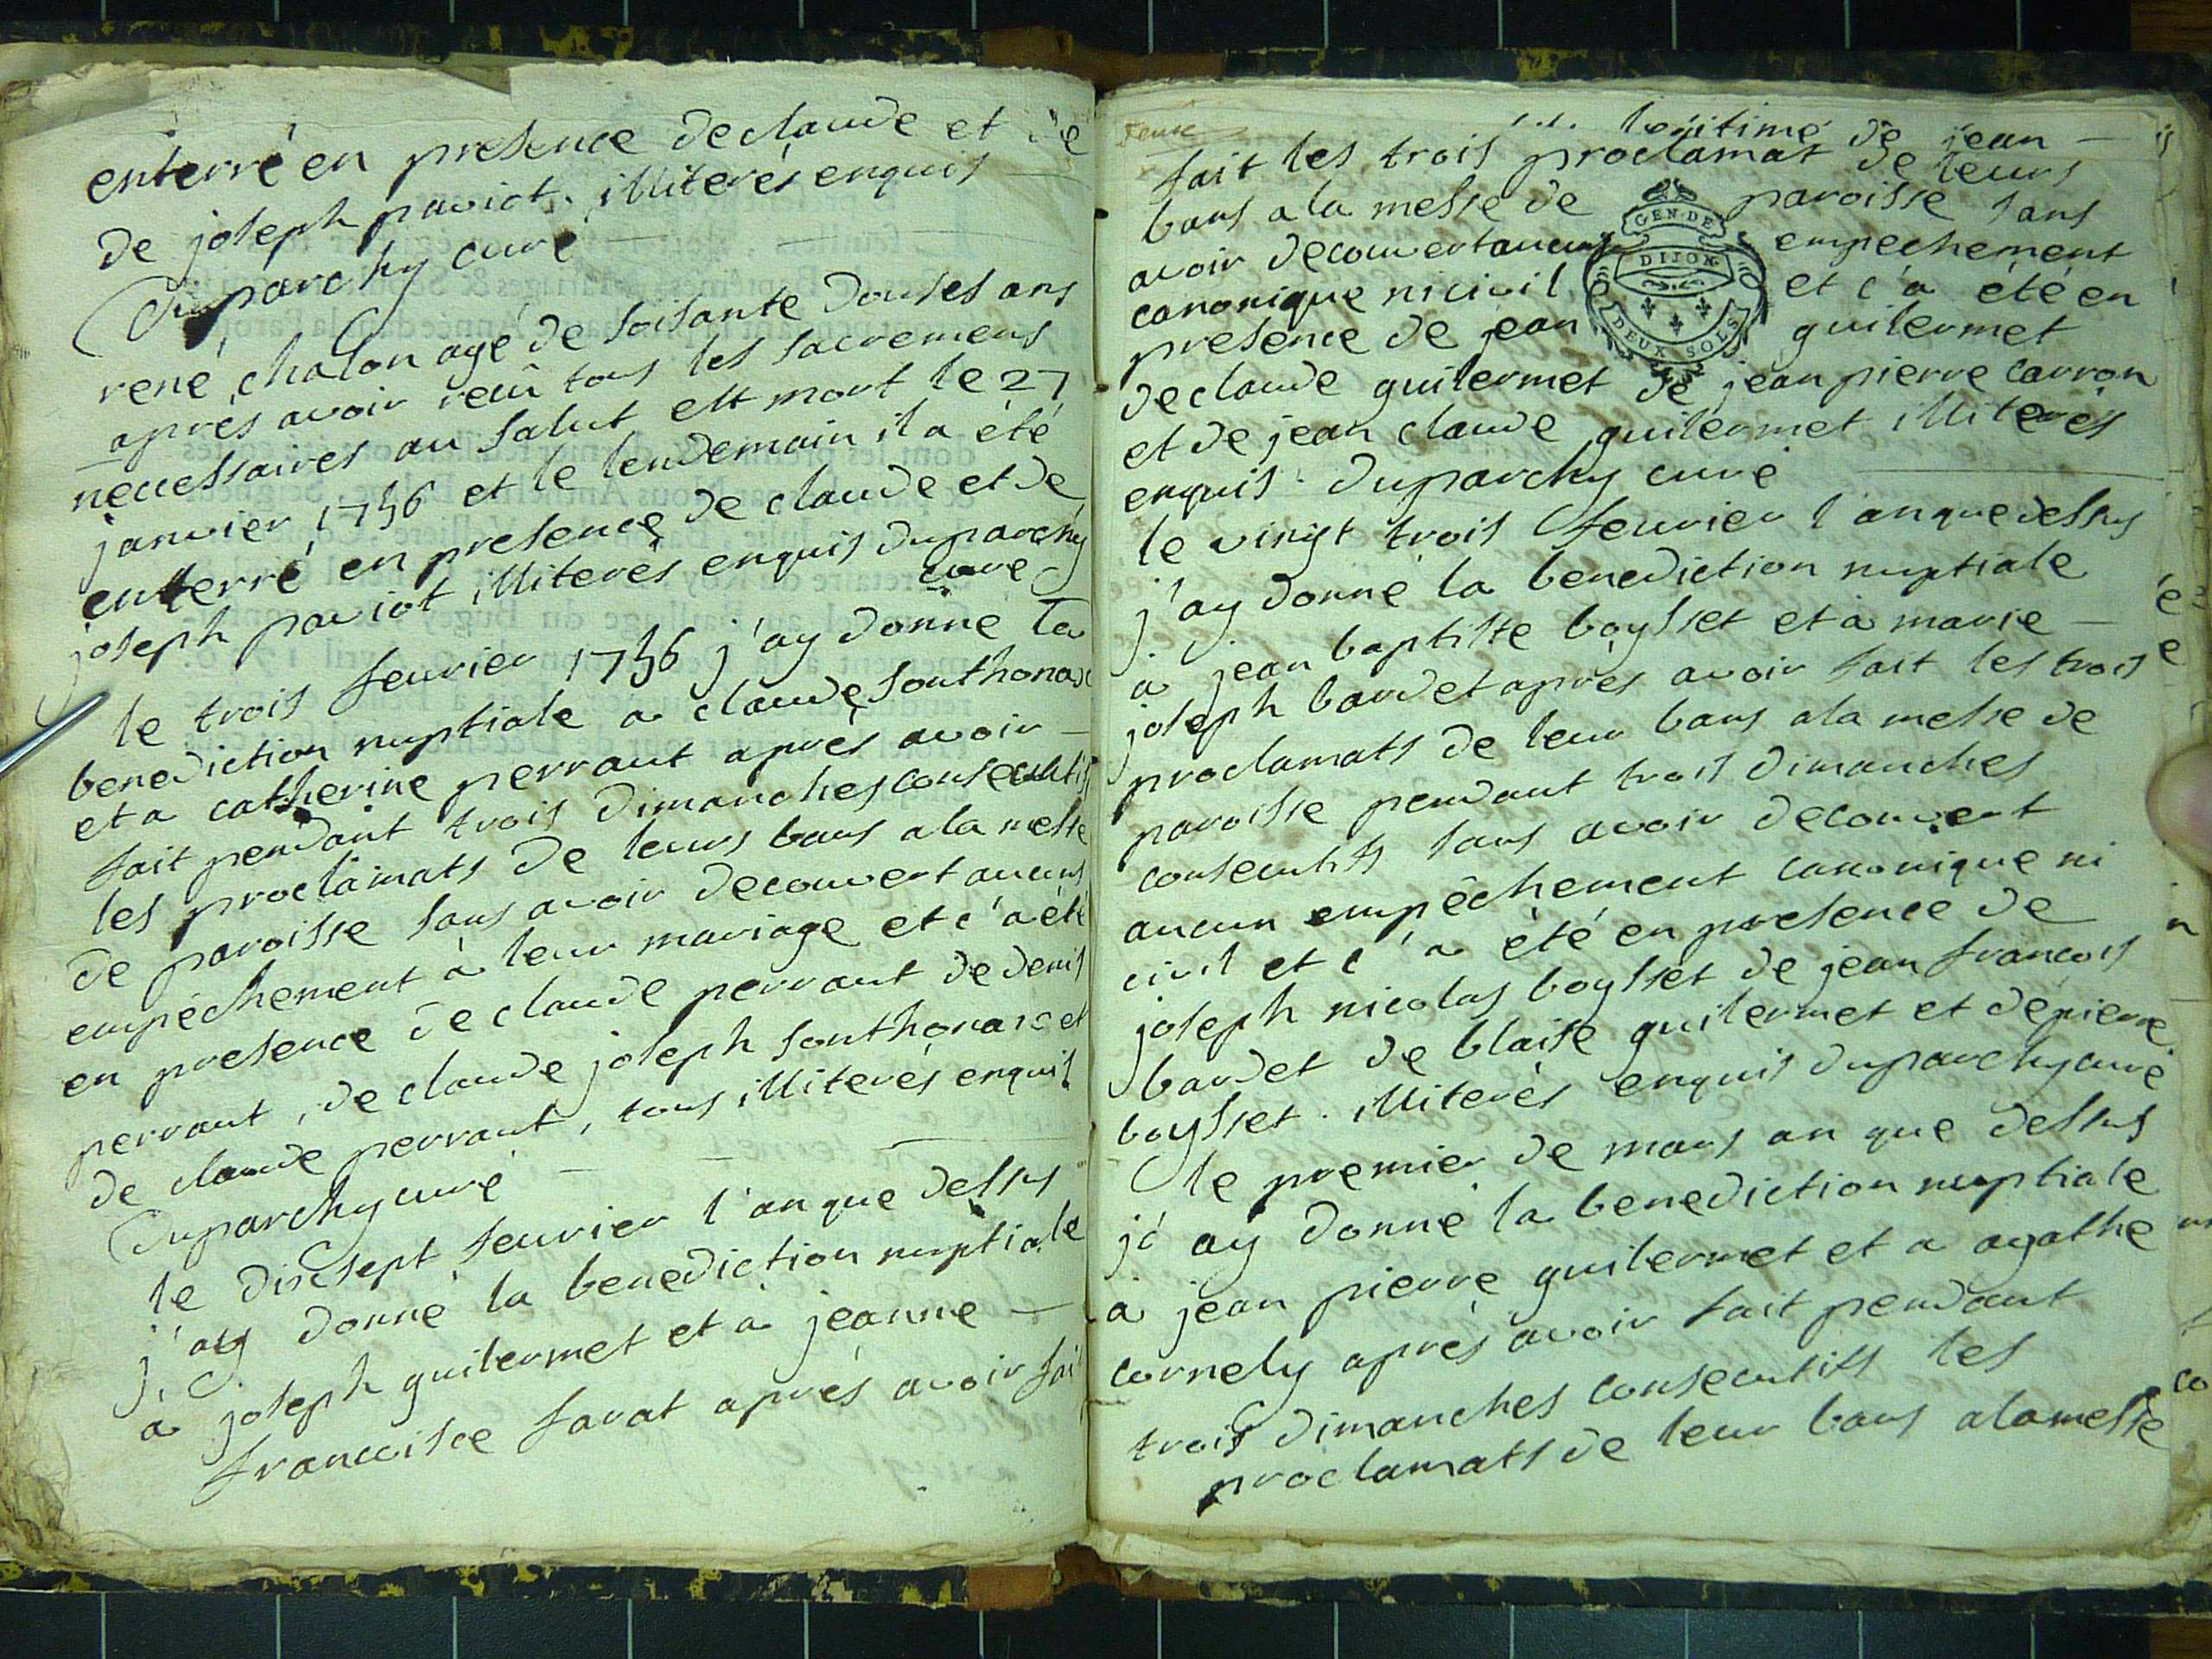 enterré en presence de claude et de
de joseph paviot. illiterés enquis
Duparchy curé
rené chalon agé de soisante douses ans
aprés avoir reçû tous les sacremens
necessaires au salut est mort le 27
janvier 1756 et le lendemain il a été
enterré en presence de claude et de
joseph paviot illiterés enquis duparchy
curé
le trois feuvrier 1756 j'ay donné la
benediction nuptiale a claude southonax
et a catherine perraut aprés avoir
fait pendant trois dimanches consecutifs
les proclamats de leurs bans a la messe
de paroisse sans avoir decouvert aucuns
empéchement à leur mariage et c'a été
en presence de claude perraut de denis
perraut, de claude joseph southonax et
de claude perraut, tous illiterés enquis
Duparchy curé
le dixsept feuvrier l'an que dessus
j'ay donné la benediction nuptiale
à joseph guilermet et à jeanne
francoise farat aprés avoir fait
legitime de jean
fait les trois proclamats de leurs
bans a la messe de paroisse sans
avoir decouvert aucuns empechement
canonique ni civil et c'a été en
presence de jean guilermet
de claude guilermet de jean pierre carron
et de jean claude guilermet illiterés
enquis. duparchy curé
GEN. DE
DIJON
DEUX SOLS
le vingt trois feuvrier l'an que dessus
j'ay donné la benediction nuptiale
à jean baptiste boysset et à marie
joseph bardet aprés avoir fait les trois
proclamats de leur bans a la messe de
paroisse pendant trois dimanches
consecutifs sans avoir decouvert
aucun empêchement canonique ni
civil et c'a été en presence de
joseph nicolas boysset de jean francois
bardet de blaise guilermet et de pierre
boysset. illiterés enquis duparchy curé
le premier de mars an que dessus
j'ay donné la benediction nuptiale
à jean pierre guilermet et a agathe
cornely aprés avoir fait pendant
trois dimanches consecutifs les
proclamats de leur bans a la messe